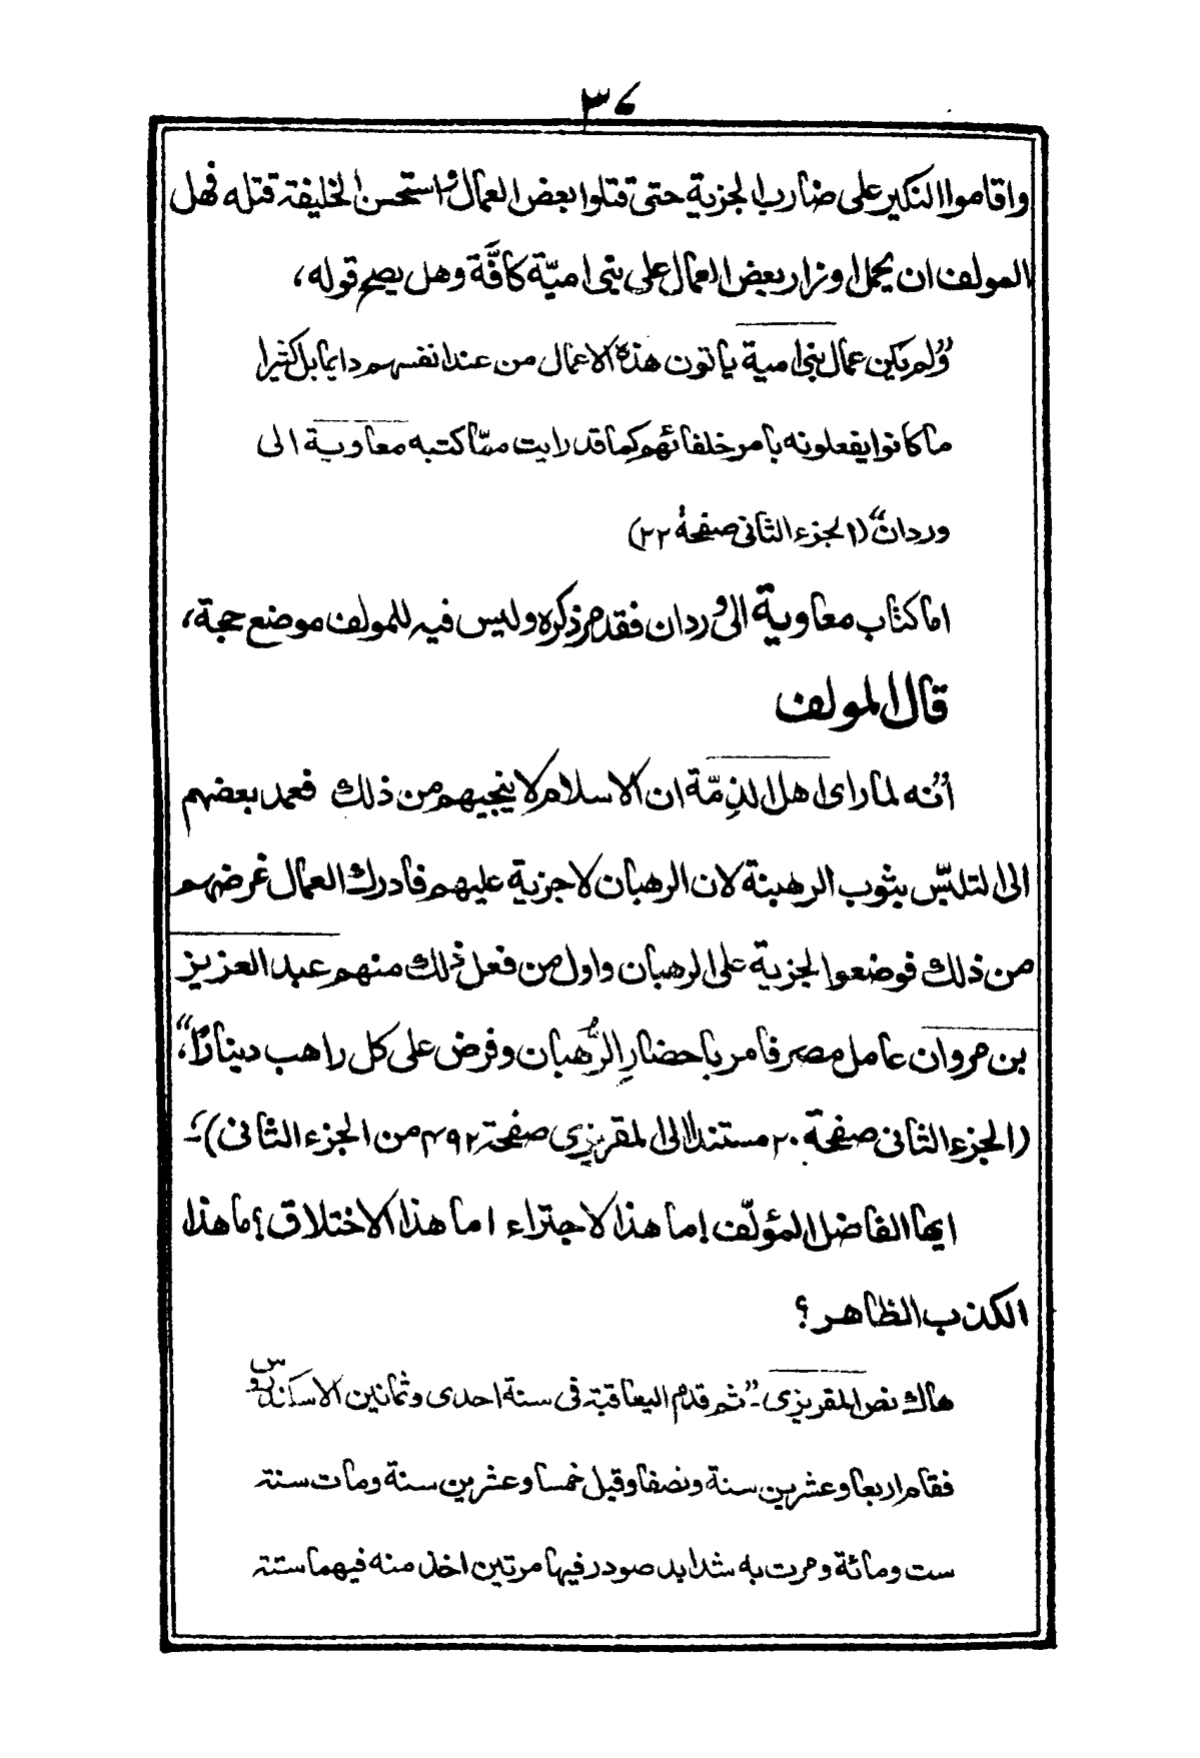 ٣٧
واقاموا النكير على ضارب الجزية حتى قتلوا بعض العمال واستحسن الخليفة قتله فهل
المولف ان يحمل اوزار بعض العمال على بنى امية كافَّة وهل يصح قوله،
”ولم يكن عمال بنى امية ياتون هذه الاعمال من عند انفسهم دايما بل كثيرا
ما كانوا يفعلونه بامر خلفائهم كما قد رايت ممّا كتبه معاوية الى
وردان“ (الجزء الثانى صفحة ٢٢)
اما كتاب معاوية الى وردان فقد مر ذكره وليس فيه للمولف موضع حجة،
قال المولف
”انه لما راى اهل الذِمّة ان الاسلام لا ينجيهم من ذلك فعمد بعضهم
الى التلبّس بثوب الرهبنة لان الرهبان لا جزية عليهم فادرك العمال غرضهم
من ذلك فوضعوا الجزية على الرهبان واول من فعل ذلك منهم عبد العزيز
بن مروان عامل مصر فامر باحضارِ الرُّهبان وفرض على كل راهب دينارًا“،
(الجزء الثانى صفحة ٢٠ مستندا الى المقريزى صفحة ٤٩٢ من الجزء الثانى)؎
ايها الفاضل المؤلّف! ما هذا الاجتراء ا ما هذا الاختلاق؟ ما هذا
الكذب الظاهر؟
هاك نص المقريزى۔ ”ثم قدم اليعاقبة فى سنة احدى وثمانين الاسكندروس
فقام اربعا وعشرين سنة ونصفا وقيل خمسا وعشرين سنة ومات سنة
ست ومائة ومرت به شدايد صودر فيها مرتين اخذ منه فيهما ستة